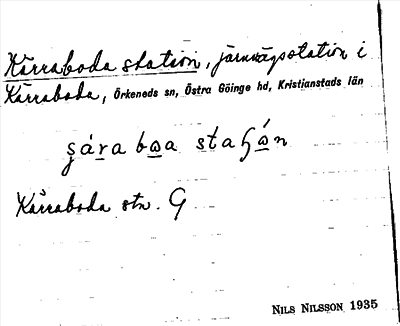 Kärraboda station, järnvägsstation i
Kärraboda, Örkeneds sn, Östra Göinge hd, Kristianstads län
Kärraboda stn. G
NILS NILSSON 1935